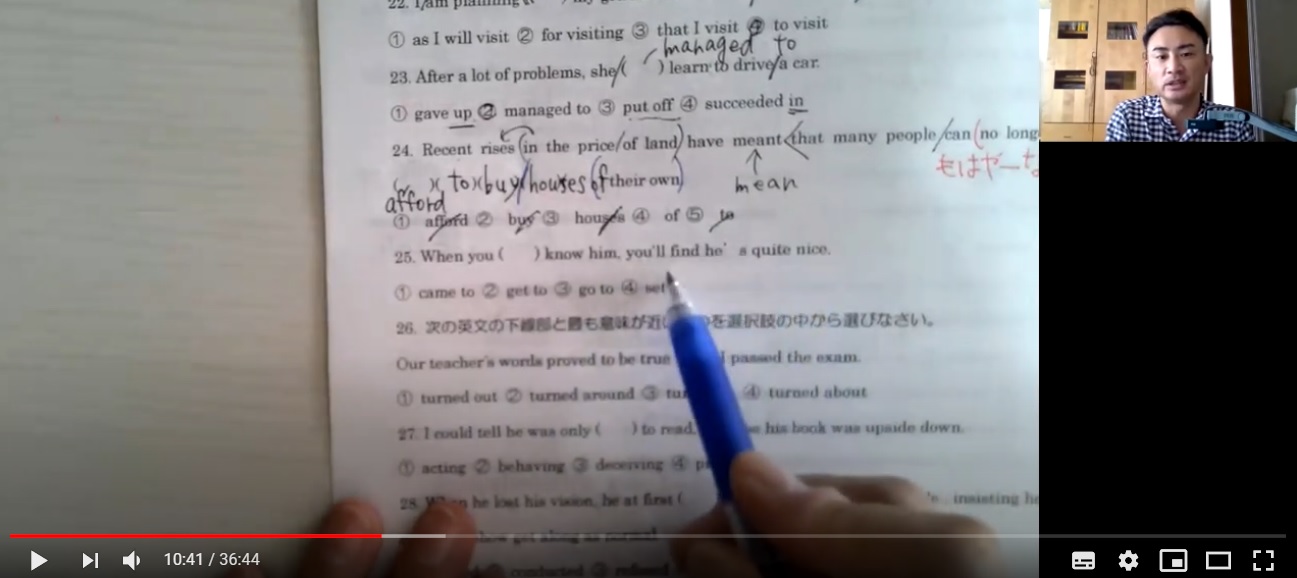 22. I am planning
① as I will visit ② for visiting ③ that I visit ④ to visit
managed to
23. After a lot of problems, she ( ) learn to drive a car.
① gave up ② managed to ③ put off ④ succeeded in
24. Recent rises in the price of land have meant that many people can no long
もはや
mean
to buy houses of their own
afford
① afford ② buy ③ houses ④ of ⑤ to
25. When you ( ) know him, you'll find he's quite nice.
① came to ② get to ③ go to ④ set
26. 次の英文の下線部と最も意味が近い を選択肢の中から選びなさい。
Our teacher's words proved to be true I passed the exam.
① turned out ② turned around ③ ④ turned about
27. I could tell he was only ( ) to read. his book was upside down.
① acting ② behaving ③ deceiving ④
28. When he lost his vision, he at first ( insisting he
how get along as normal
conducted ③ refused
10:41 / 36:44